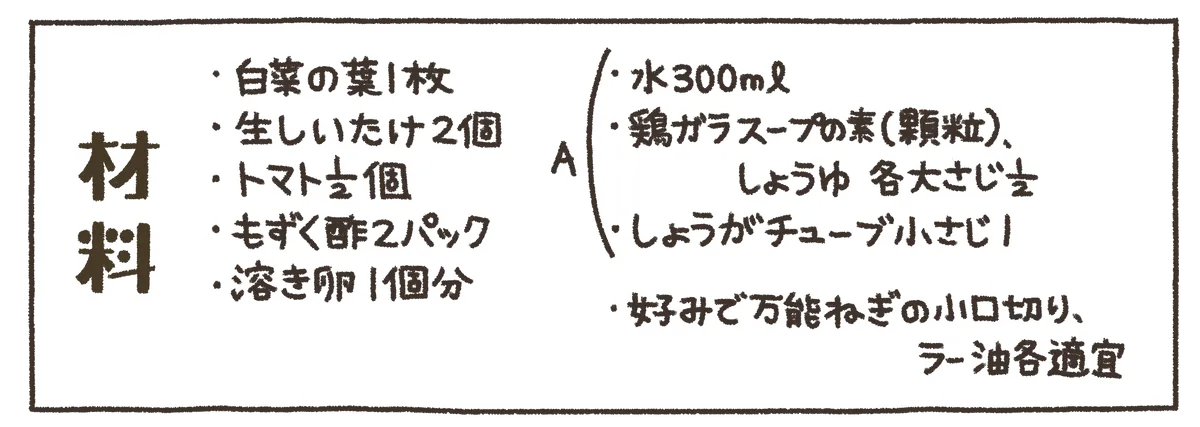 材料
・白菜の葉1枚
・生しいたけ2個
・トマト½個
・もずく酢2パック
・溶き卵1個分
A
・水300mℓ
・鶏ガラスープの素(顆粒)、
しょうゆ 各大さじ½
・しょうがチューブ小さじ1
・好みで万能ねぎの小口切り、
ラー油各適宜